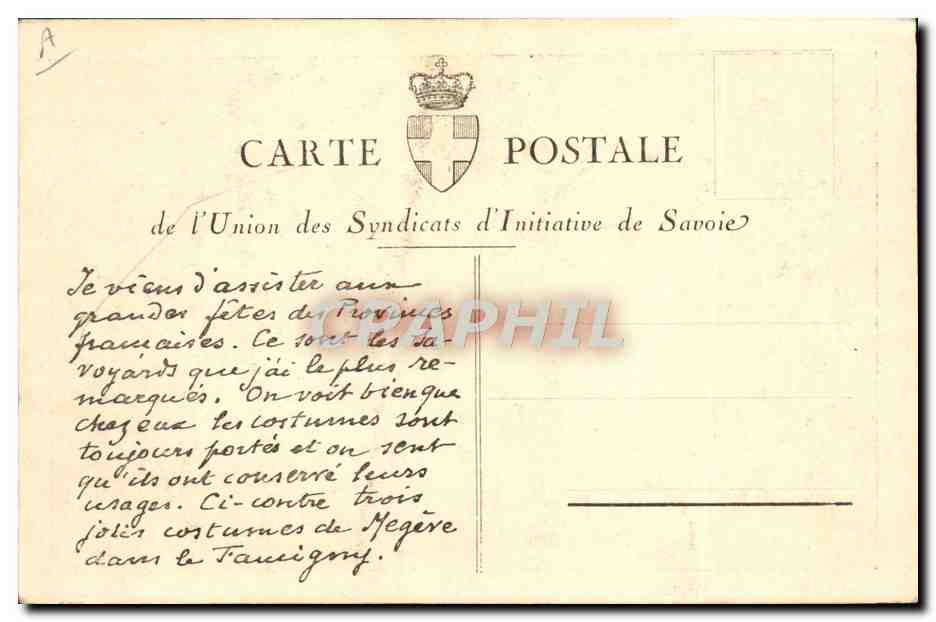 A
CARTE POSTALE
de l'Union des Syndicats d'Initiative de Savoie
Je viens d'assister aux
grandes fêtes des Provinces
françaises. Ce sont les Sa-
voyards que j'ai le plus re-
marqués. On voit bien que
chez eux les costumes sont
toujours portés et on sent
qu'ils ont conservé leurs
usages. Ci-contre trois
jolis costumes de Megève
dans le Faucigny.
CPAPHIL